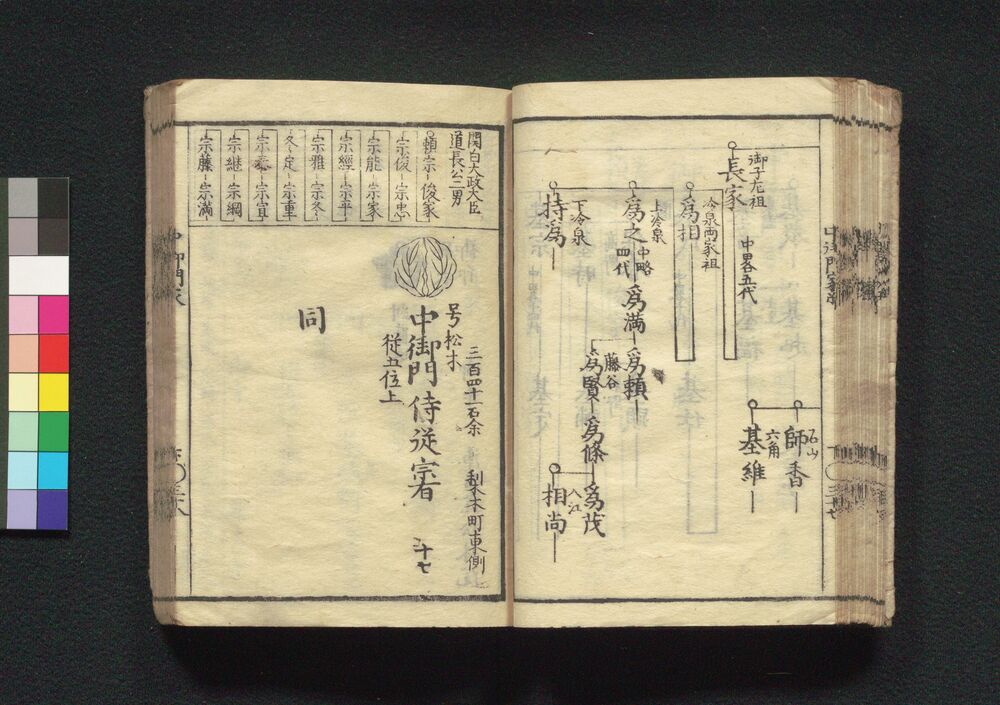 石山
師香
六角
基維
御子左祖
長家
中畧五代
冷泉両家祖
為相
上冷泉
為之
中略
四代
為満
為頼
藤谷
為賢
為條
為茂
入江
相尚
下冷泉
持為
関白太政大臣
道長公二男
頼宗
俊家
宗俊
宗忠
宗能
宗家
宗經
宗平
宗雅
宗冬
冬定
宗重
宗宣
宗継
宗綱
宗藤
宗満
三百四十一石余
梨木町東側
号松木
中御門侍従宗
従五位上
同
中御門家